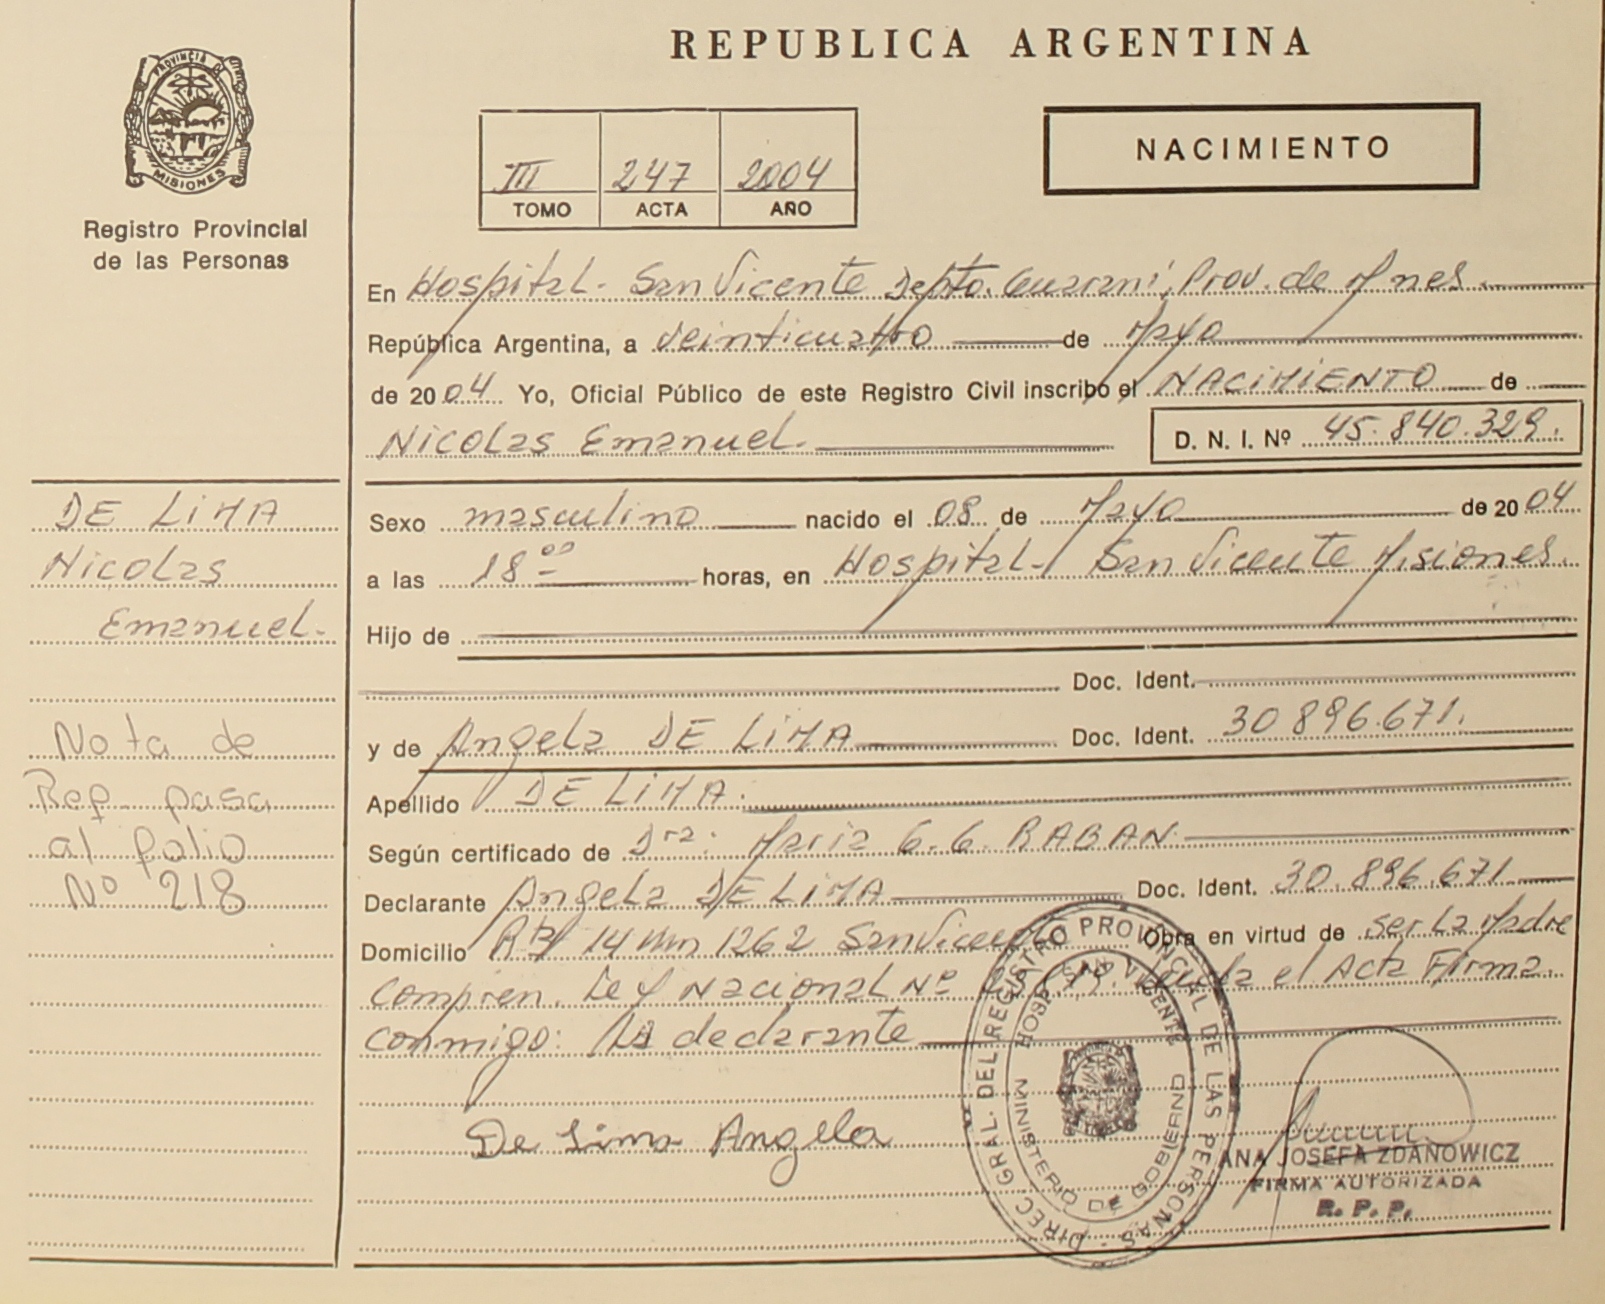 REPUBLICA ARGENTINA
PROVINCIA D MISIONES
Registro Provincial
de las Personas
III 247 2004
TOMO ACTA AÑO
NACIMIENTO
En Hospital. San Vicente Depto. Guaraní, Prov. de Mnes.
República Argentina, a veinticuatro de Mayo
de 2004 Yo, Oficial Público de este Registro Civil inscribo el NACIMIENTO de
Nicolas Emanuel.
D. N. I. Nº 45.840.329.
DE LIMA
Nicolas
Emanuel.
Nota de
Ref pasa
al folio
Nº 218
Sexo masculino nacido el 08 de Mayo de 2004
a las 18 00 horas, en Hospital. San Vicente Misiones.
Hijo de
Doc. Ident.
y de Angela DE LIMA Doc. Ident. 30896.671.
Apellido DE LIMA.
Según certificado de Dra: Maria G. G. RABAN.
Declarante Angela DE LIMA Doc. Ident. 30.896.671
Domicilio Rta 14 Km 1262 San Vicente Obra en virtud de ser la Madre
Compren. Ley Nacional Nº el Acta Firma.
conmigo: la declarante
De Lima Angela
DIREC. GRAL. DEL REGISTRO PROVINCIAL DE LAS PERSONAS
HOSP. SAN VICENTE
MINISTERIO DE GOBIERNO
ANA JOSEFA ZDANOWICZ
FIRMA AUTORIZADA
R. P. P.